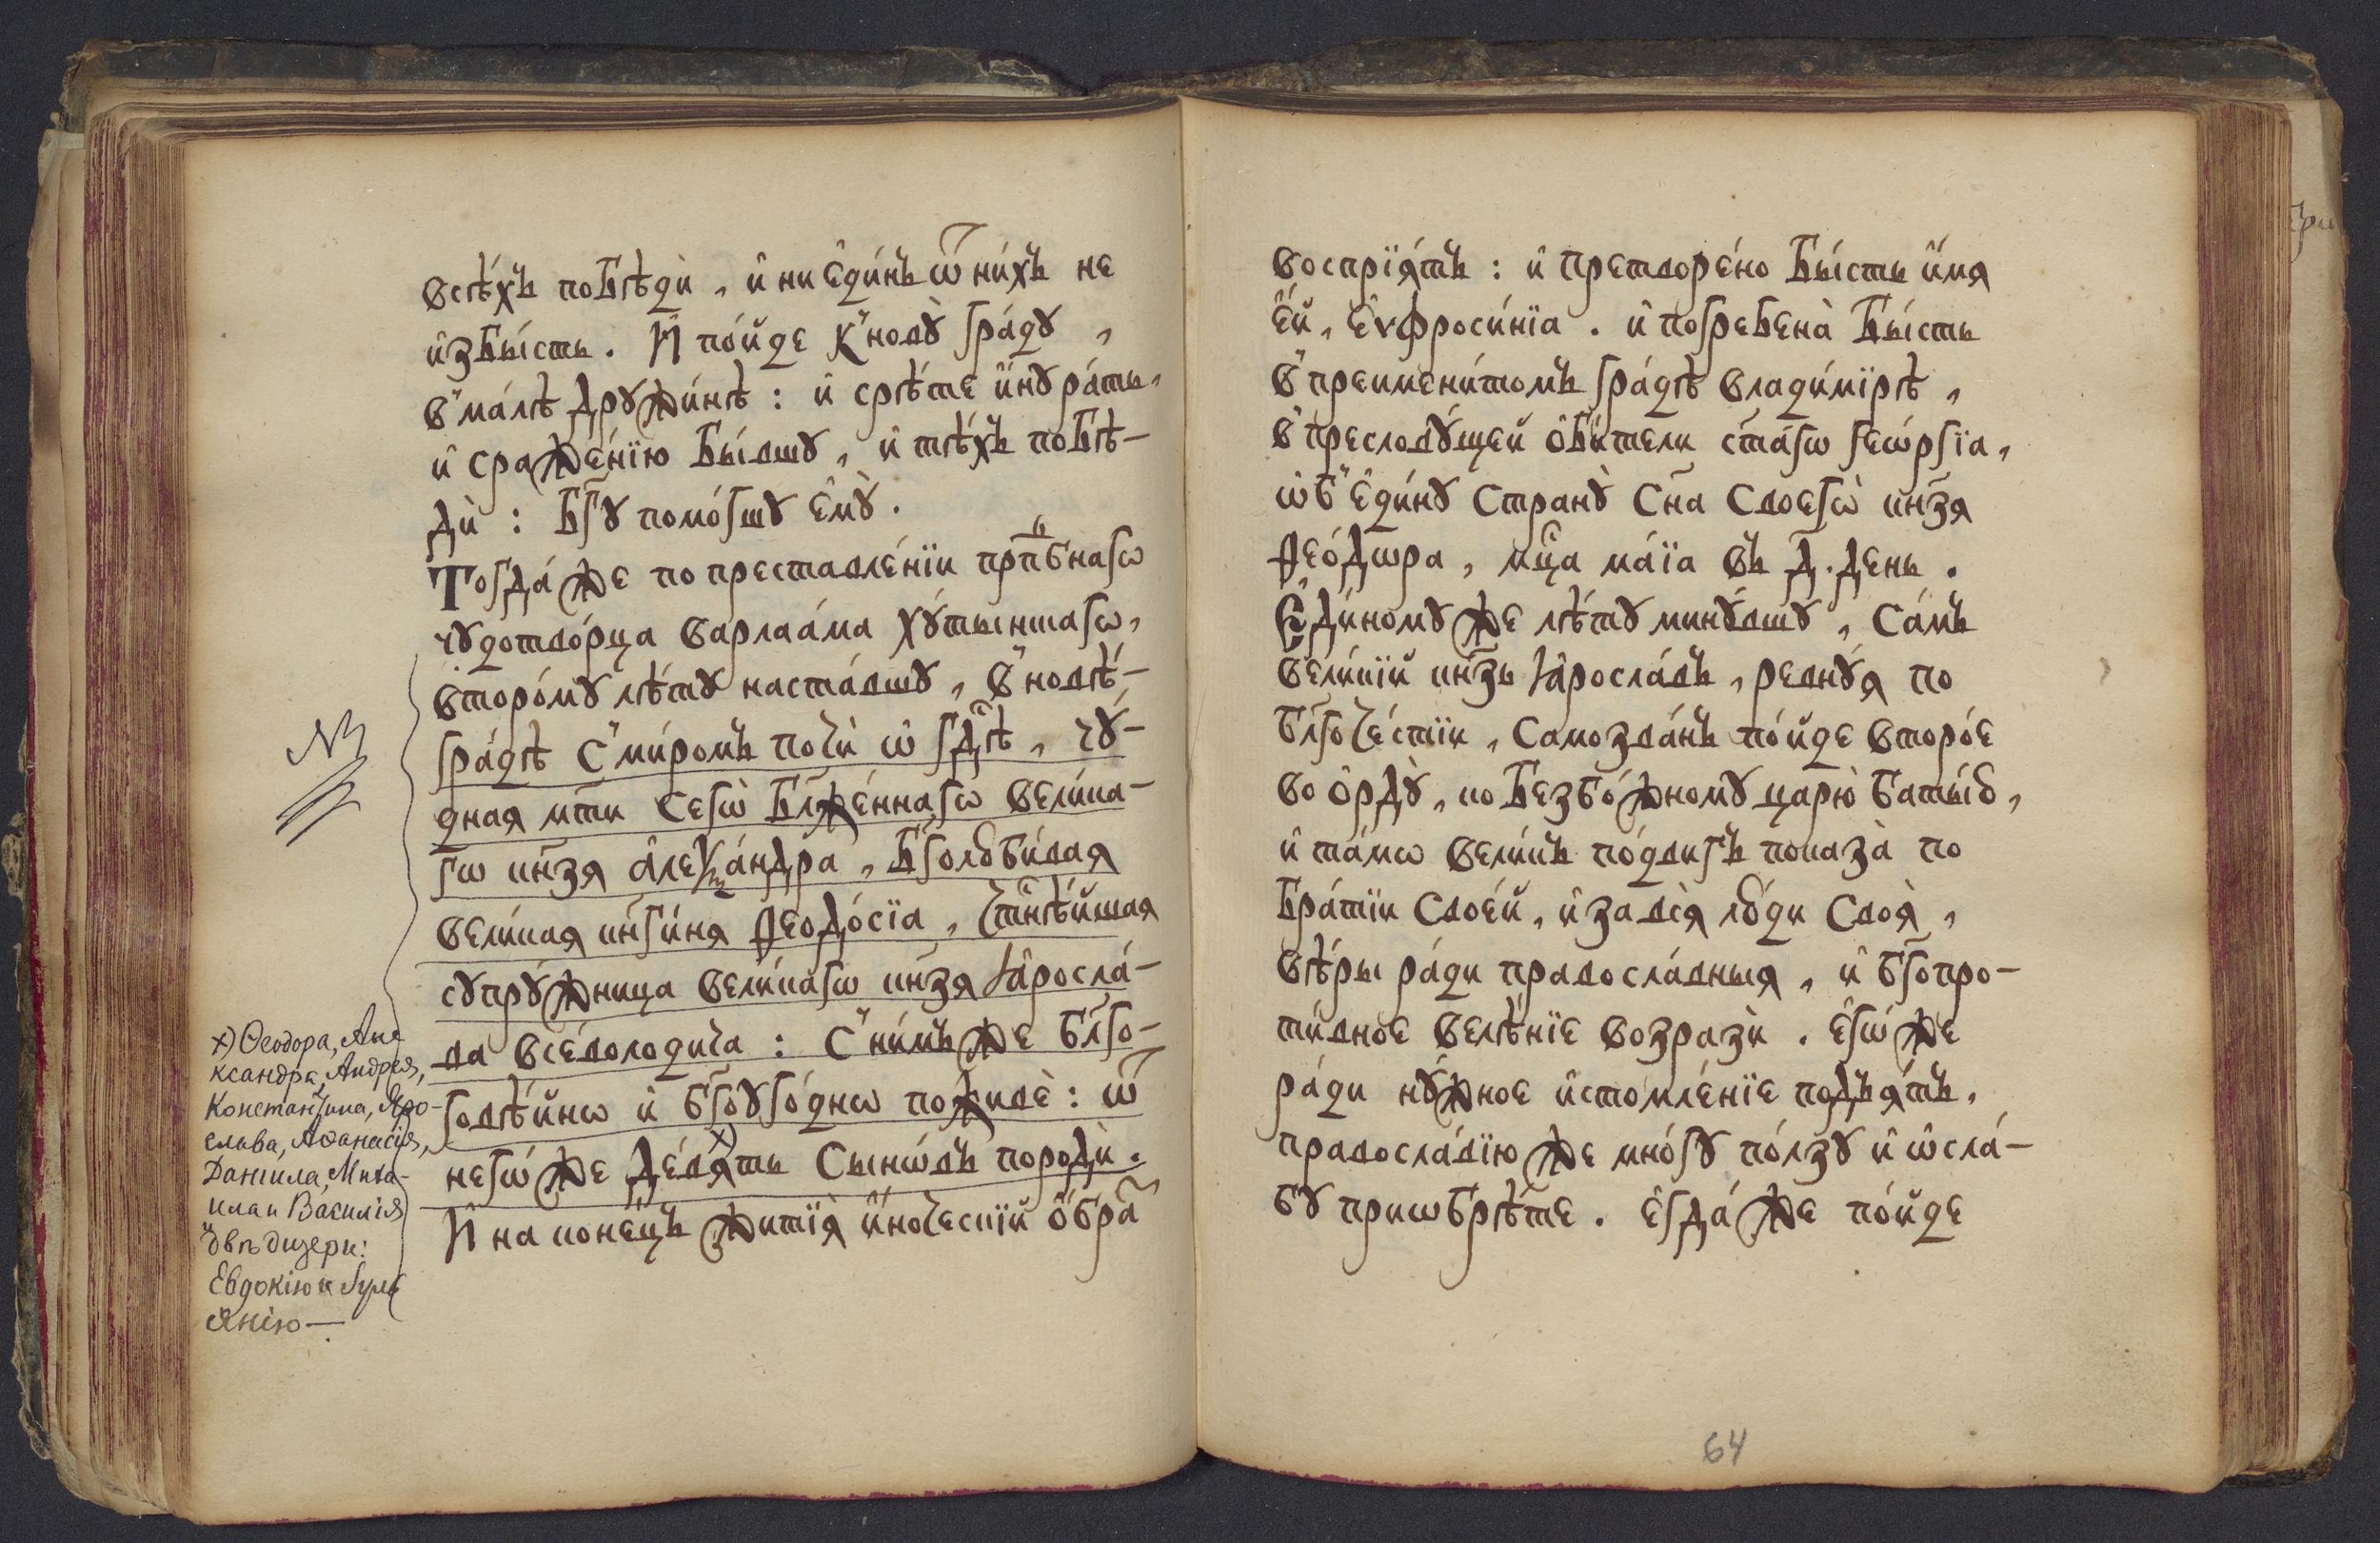 всѣ́хъ побѣдѝ, и҆ ни є҆ди́нъ ѿ ни́хъ не
и҆збы́сть. И҆ по́йде к̾новꙋ̀ гра́дꙋ,
в̾ма́лѣ дрꙋжи́нѣ: и҆ срѣ́те и҆́нꙋ ра́ть,
и҆ сраже́нїю бы́вшꙋ, и҆ тѣ́хъ побѣ-
дѝ: бг҃ꙋ помо́гшꙋ є҆мꙋ̀.
Тогда́ же по преставле́нїи прп҃бнагѡ
чꙋдотво́рца варлаа́ма хꙋ́тынскагѡ,
второ́мꙋ лѣ́тꙋ наста́вшꙋ, в̾новѣ́-
гра́дѣ с̾ми́ромъ почѝ ѡ҆ гдⷭ҇ѣ, чꙋ́-
дная мт҃и сегѡ̀ бл҃же́ннагѡ вели́ка-
гѡ кн҃зя а҆леѯа́ндра, бг҃олюби́вая
вели́кая кнг҃и́ня ѳеодо́сїа, чтⷭ҇нѣ́йшая
сꙋпрꙋ́жница вели́кагѡ кн҃зя ꙗ҆росла́-
ва все́володича: с̾ни́мъ же бл҃го-
говѣ́йнѡ и҆ бг҃оꙋго́днѡ поживѐ: ѿ
негѡ́ же де́вять х) сынѡ́въ породѝ.
И҆ на коне́цъ житїя̀ и҆́ноческїй ѡ҆́браⷥ
N3
х) Ѳеодора, Але
ксандра, Андрея,
Константина, Яро-
слава, Аѳанасія,
Даніила, Миха-
ила и Василія
и двѣ дщери:
Евдокію и Ѵулі
янію—
воспрїя́тъ: и҆ претворе́но бы́сть и҆́мя
є҆́й, є҆ѵфроси́нїа. и҆ погребена̀ бы́сть
в̾преимени́томъ гра́дѣ влади́мїрѣ,
в̾пресловꙋ́щей ѻ҆би́тели ст҃а́гѡ геѡ́ргїа,
ѡ҆б̾є҆ди́нꙋ странꙋ̀ сн҃а своегѡ̀ кн҃зя
ѳео́дѡра, мц҃а ма́їа въ д. день.
Є҆ди́номꙋ же лѣ́тꙋ минꙋ́вшꙋ, са́мъ
вели́кїй кн҃зь ꙗ҆росла́въ, ревнꙋ́я по
бл҃гоче́стїи, самозва́нъ по́йде второ́е
во ѻ҆рдꙋ̀, ко безбо́жномꙋ царю̀ баты́ю,
и҆ та́мѡ вели́къ по́двигъ показа̀ по
бра́тїи свое́й, и҆ за вся̀ лю́ди своя̀,
вѣ́ры ра́ди правосла́вныя, и҆ бг҃опро-
ти́вное велѣ́нїе возразѝ. є҆гѡ́ же
ра́ди нꙋ́жное и҆стомле́нїе подъя́тъ,
правосла́вїю же мно́гꙋ по́лзꙋ и҆ ѡ҆сла́-
бꙋ приѡбрѣ́те. є҆гда́ же по́йде
64